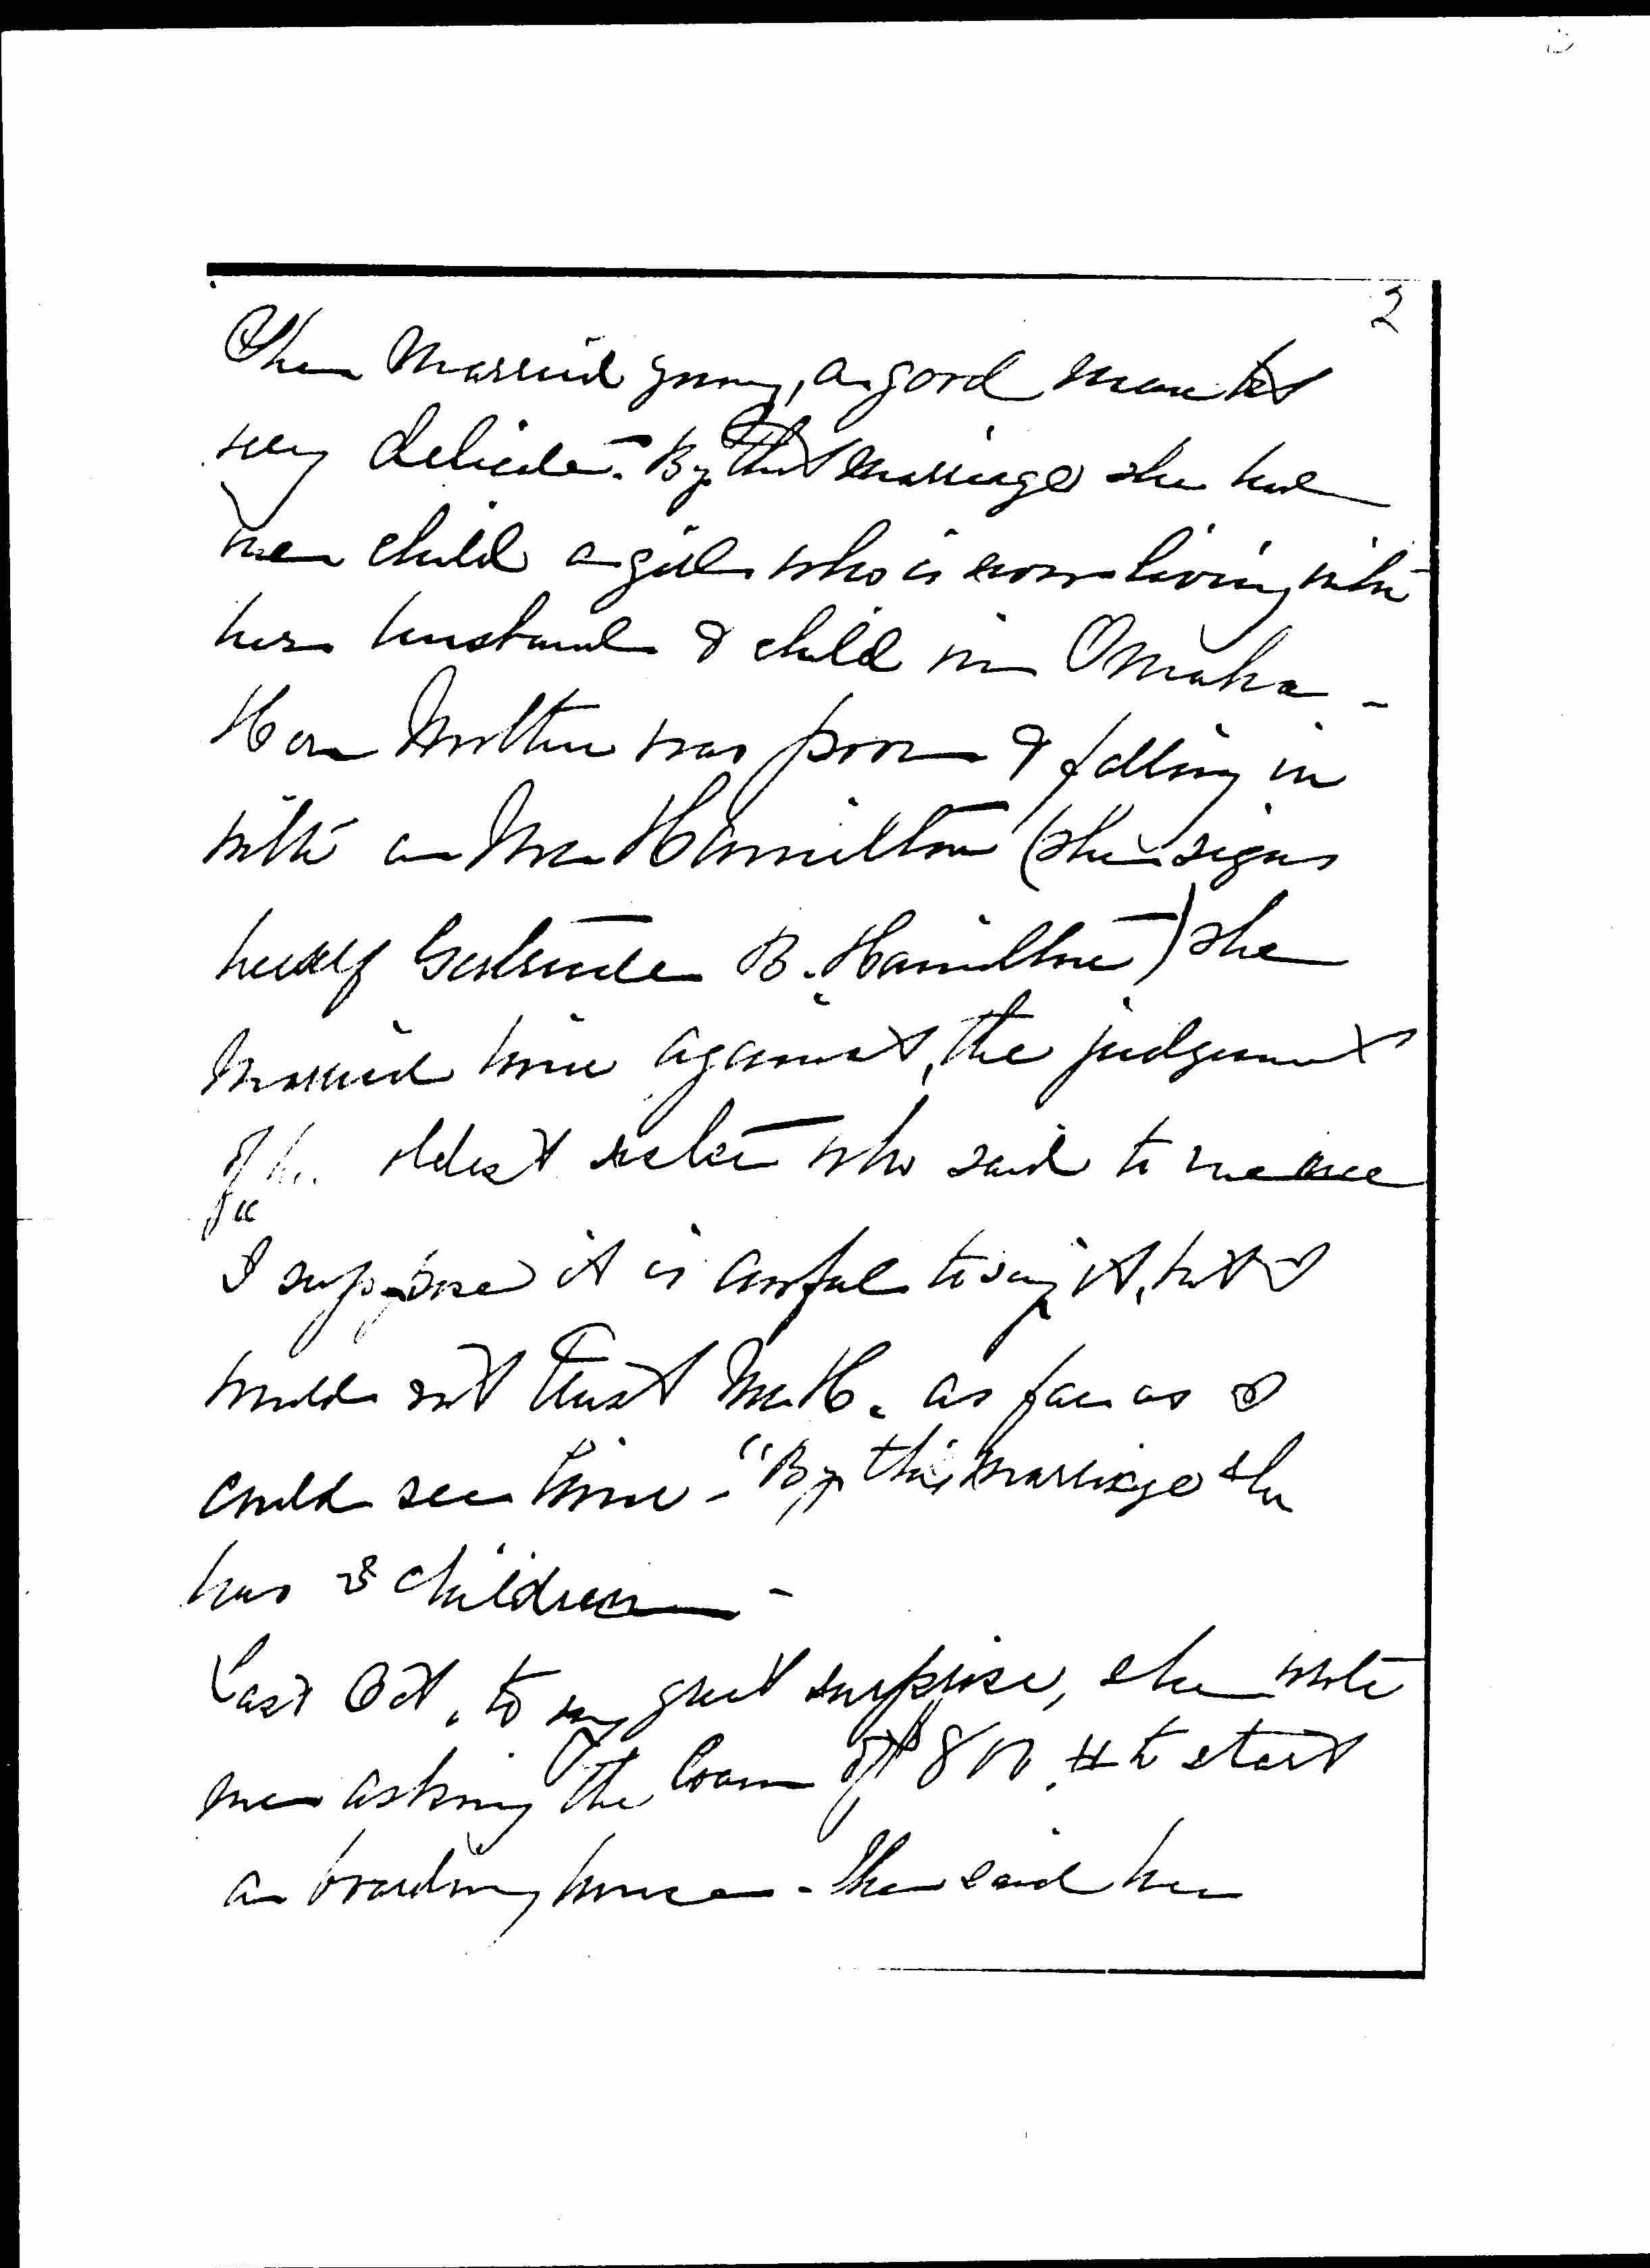 2
She married young, a good man but
very delicate. By that marriage she had
one child a girl who is now living with
her husband & child in Omaha -
Her Mother was poor & falling in
with a Mr Hamilton (she signs
herself Gertrude B. Hamilton) she
married him against the judgement
of her oldest sister who said to me once
"
I suppose it is awful to say it, but I
would not trust Mr H. as far as I
could see him -" By this marriage she
has 3 children -
Last Oct. to my great surprise, she wrote
me asking the loan of $800. to start
a boarding house - She said her